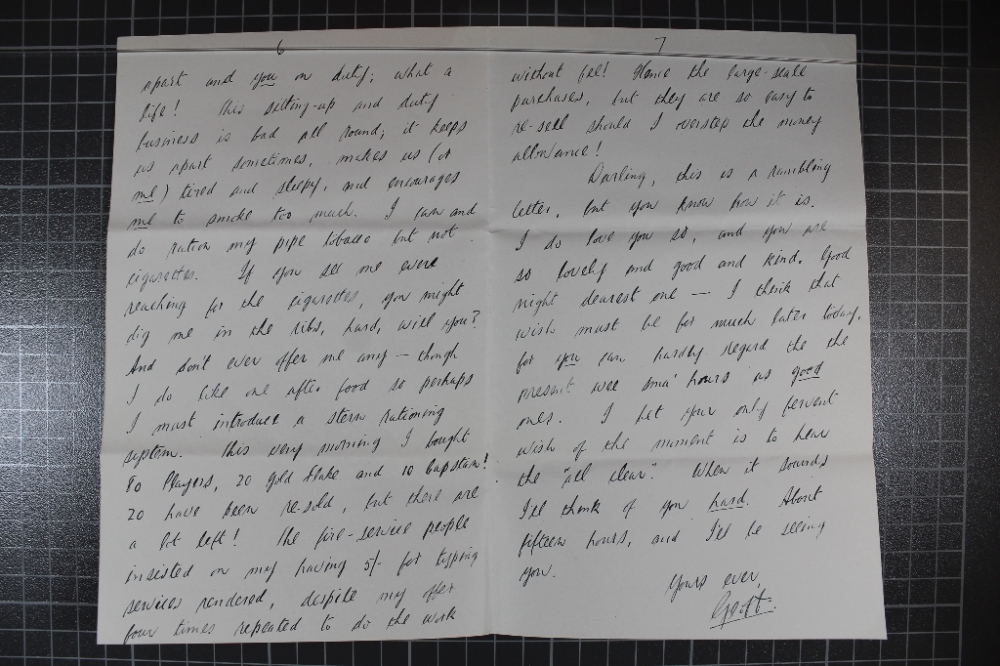 6
apart and you on duty; what a
life! This sitting-up and duty
business is bad all round; it keeps
us apart sometimes, makes us (or
me) tired and sleepy, and encourages
me to smoke too much. I can and
do ration my pipe tobacco but not
cigarettes. If you see me ever
reaching for the cigarettes, you might
dig me in the ribs, hard, will you?
And don't ever offer me any — though
I do like one after food so perhaps
I must introduce a stern rationing
system. This very morning I bought
80 Players, 20 Gold Flake and 10 Capstan!
20 have been re-sold, but there are
a lot left! The fire-service people
insisted on my having 5/- for typing
services rendered, despite my offer
four times repeated to do the work
7
without fee! Hence the large-scale
purchases, but they are so easy to
re-sell should I overstep the money
allowance!
Darling, this is a rambling
letter, but you know how it is.
I do love you so, and you are
so lovely and good and kind. Good
night dearest one — I think that
wish must be for much later today,
for you can hardly regard the the
present wee sma' hours as good
ones. I bet your only fervent
wish of the moment is to hear
the "all clear". When it sounds
I'll think of you hard. About
fifteen hours, and I'll be seeing
you.
Yours ever,
Geoff.